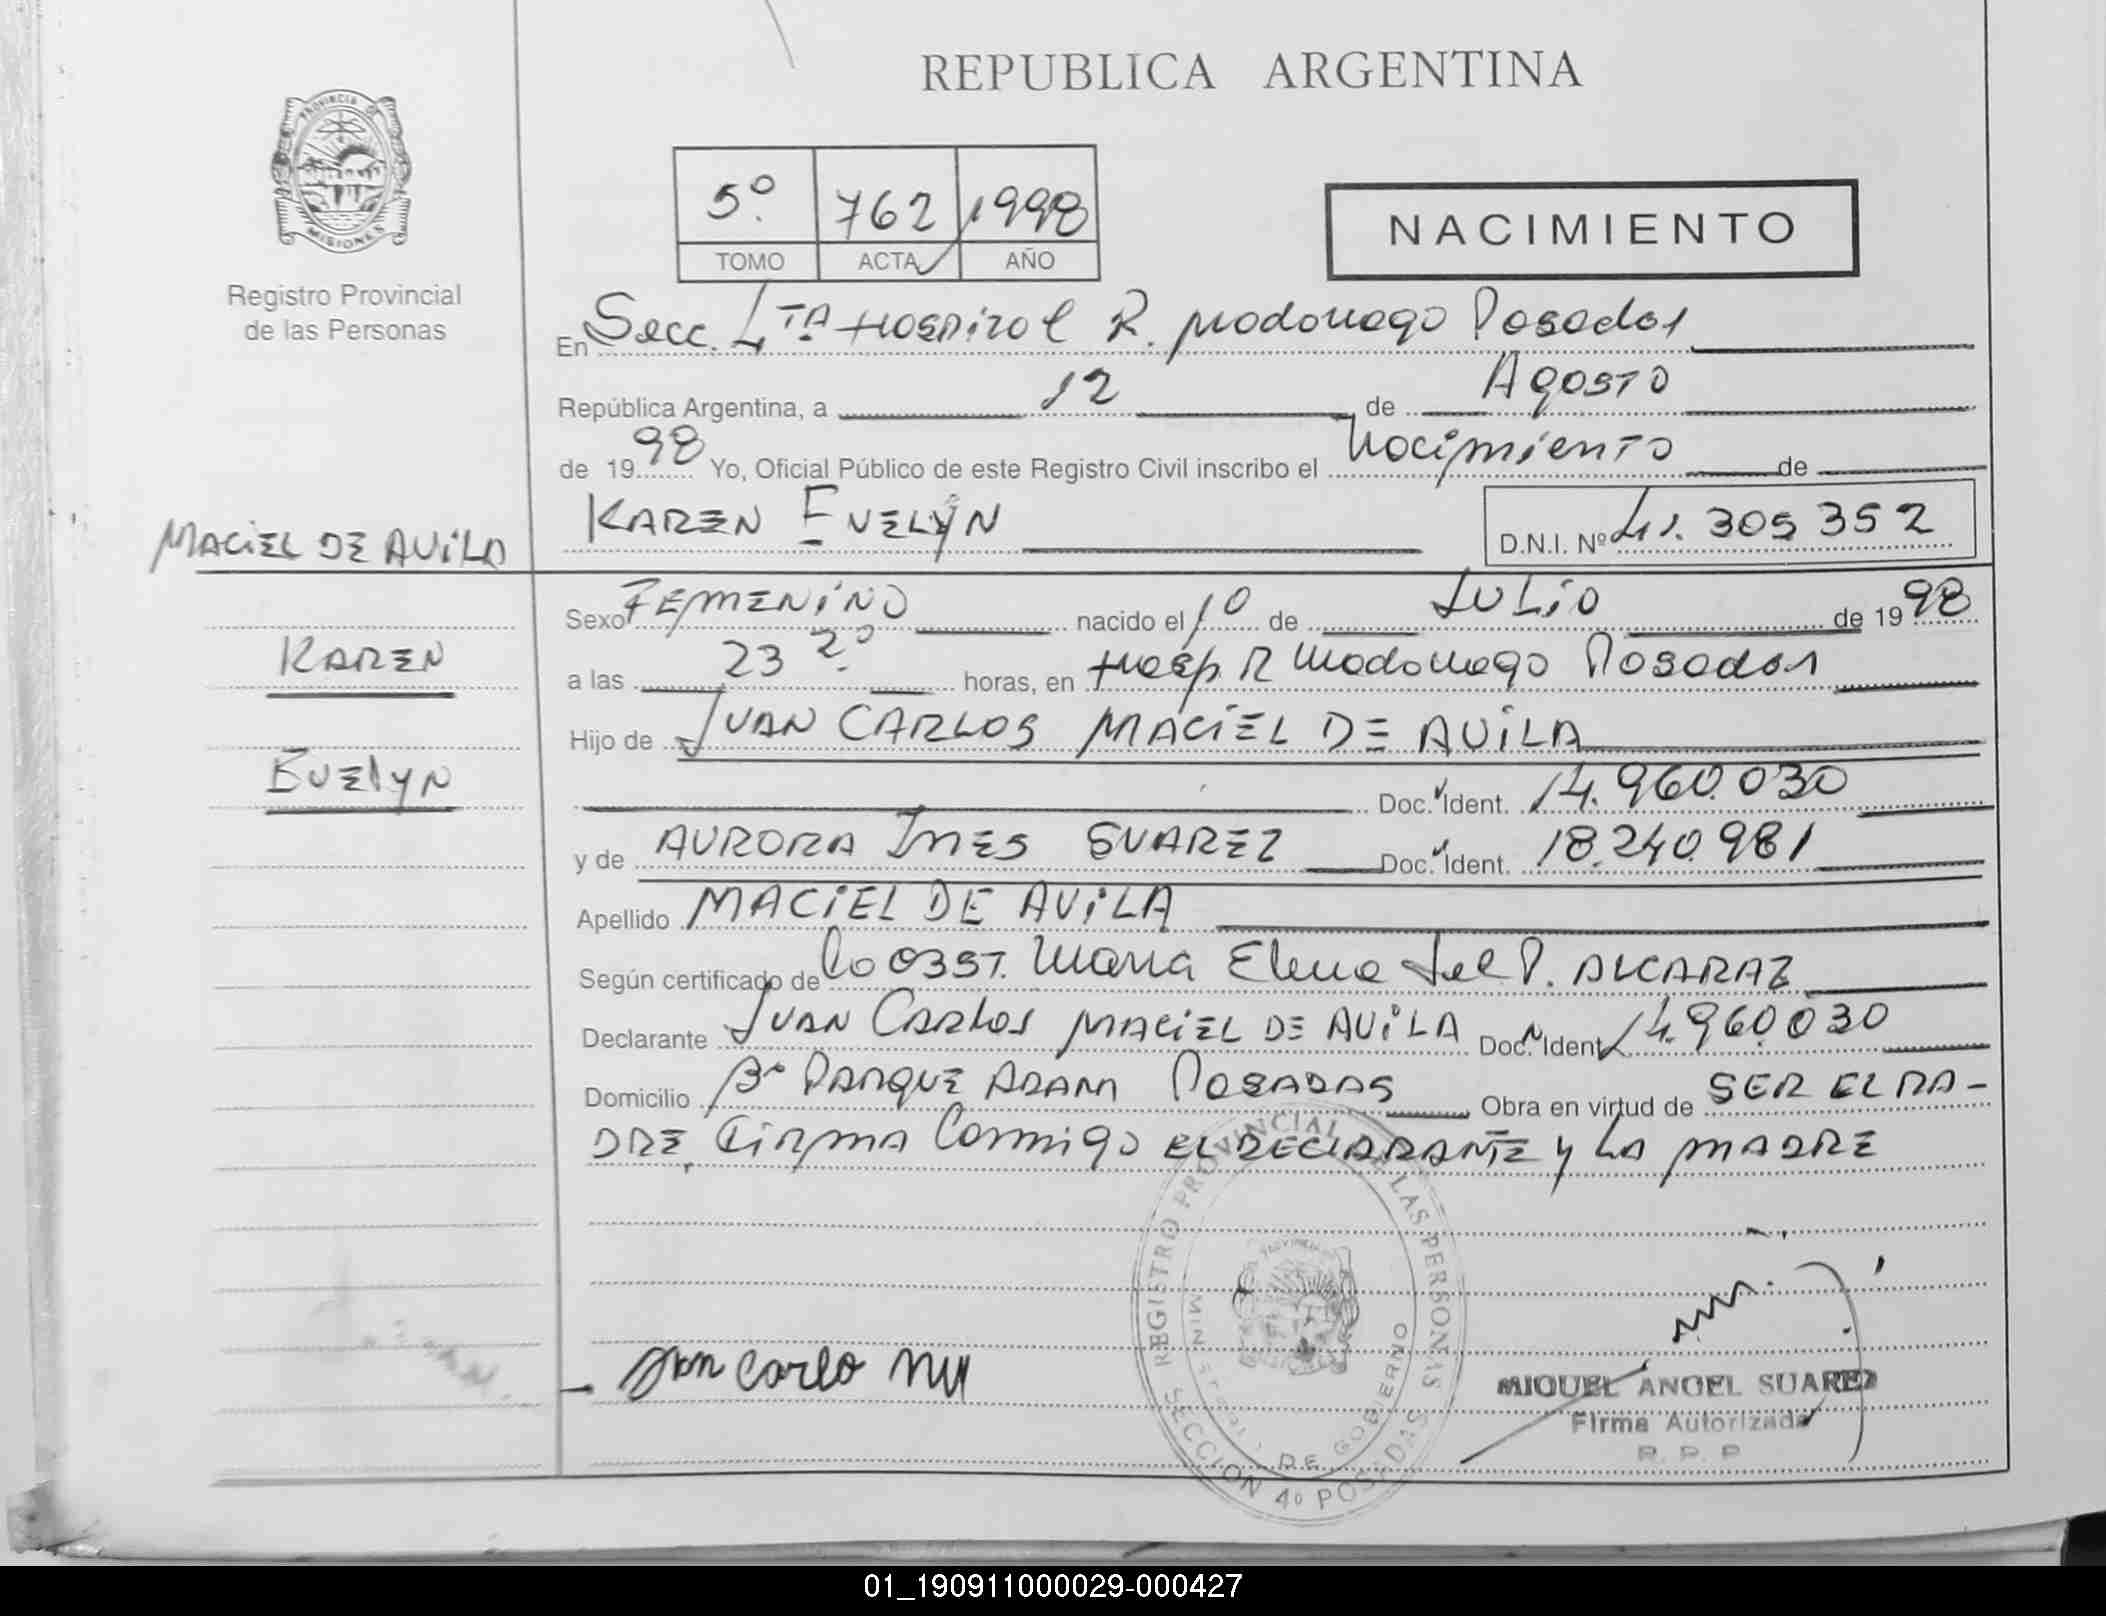 REPUBLICA ARGENTINA
PROVINCIA DE
MISIONES
Registro Provincial
de las Personas
5º 762 1998
TOMO ACTA AÑO
NACIMIENTO
En Secc. 4TA Hospital R. Madariaga Posadas
República Argentina, a 12 de Agosto
de 1998 Yo, Oficial Público de este Registro Civil inscribo el Nacimiento de
KAREN EVELYN D.N.I. Nº 41.305352
MACIEL DE AVILA
KAREN
EVELYN
Sexo FEMENINO nacido el 10 de JULIO de 1998
a las 23 20 horas, en Hosp. R Madariaga Posadas
Hijo de JUAN CARLOS MACIEL DE AVILA
Doc. Ident. 14.960.030
y de AURORA INES SUAREZ Doc. Ident. 18.240.981
Apellido MACIEL DE AVILA
Según certificado de la OBST. Maria Elena del P. ALCARAZ
Declarante JUAN CARLOS MACIEL DE AVILA Doc. Ident. 14.960.030
Domicilio Bº PARQUE ADAM POSADAS Obra en virtud de SER EL PA-
DRE, FIRMA Conmigo EL DECLARANTE y LA MADRE
REGISTRO PROVINCIAL DE LAS PERSONAS
MINISTERIO DE GOBIERNO
SECCION 4º POSADAS
Juan Carlo
MIGUEL ANGEL SUAREZ
Firma Autorizada
R. P. P
01_190911000029-000427